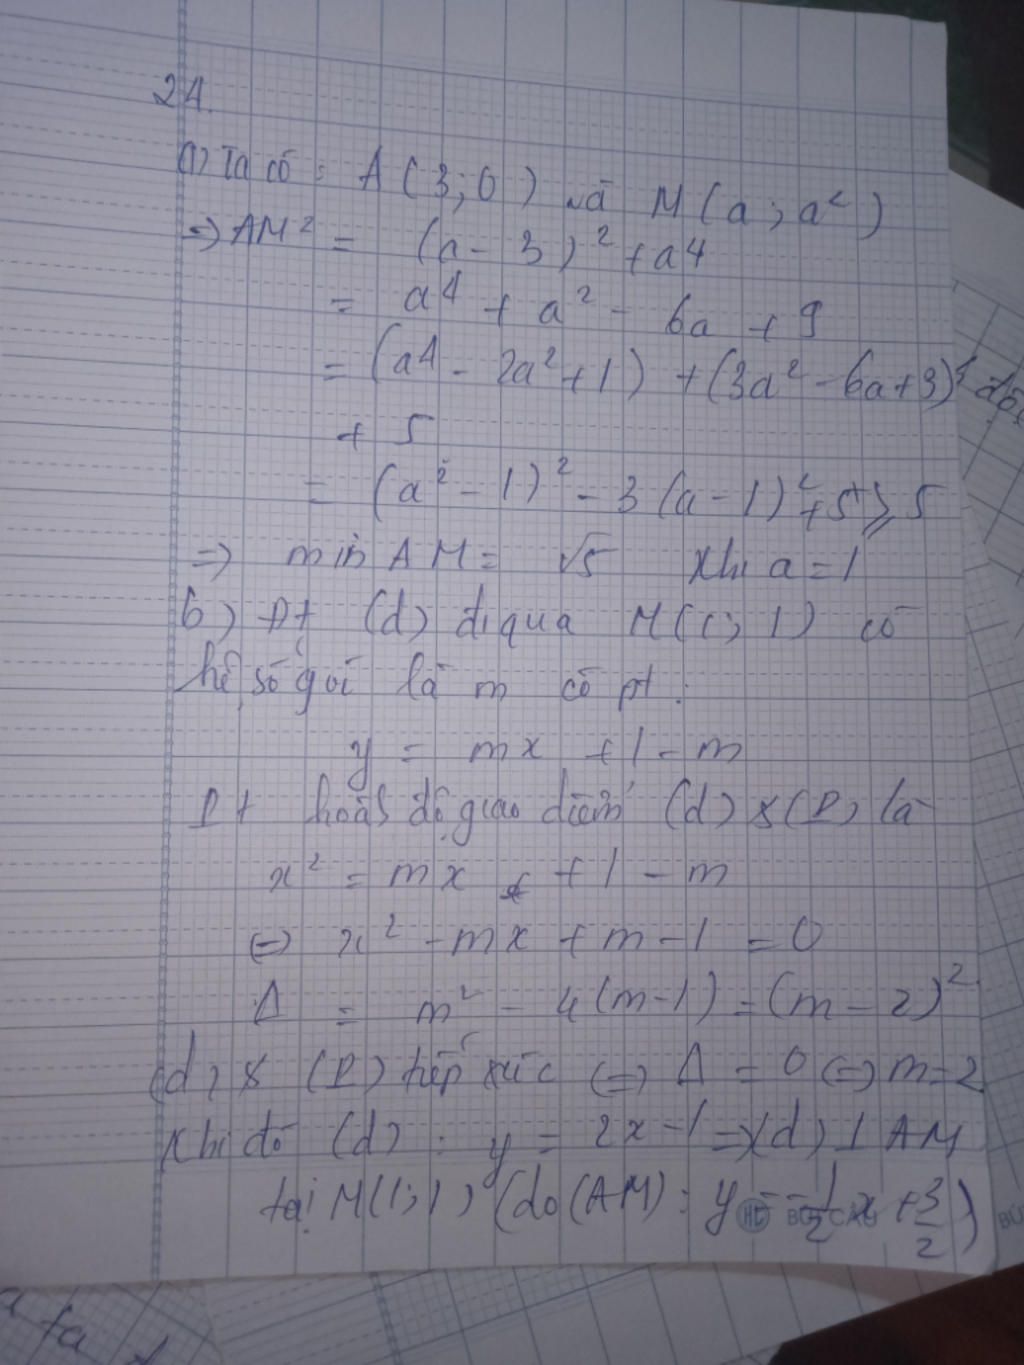 24.
a) Ta có : A(3;0) và M(a; a²)
=> AM² = (a-3)² + a4
= a4 + a² - 6a + 9
= (a4 - 2a² + 1) + (3a² - 6a + 3)
+ 5
= (a² - 1)² - 3(a-1)² + 5 ≥ 5
=> min AM = √5 Khi a = 1
b) Pt (d) đi qua M(1; 1) có
hệ số góc là m có pt :
y = mx + 1 - m
Pt hoành độ giao điểm (d) & (P) là
x² = mx + 1 - m
<=> x² - mx + m - 1 = 0
Δ = m² - 4(m-1) = (m-2)²
(d) & (P) tiếp xúc <=> Δ = 0 <=> m=2
Khi đó (d) : y = 2x - 1 => (d) ⊥ AM
tại M(1;1) (do (AM) : y = -1/2 x + 3/2)